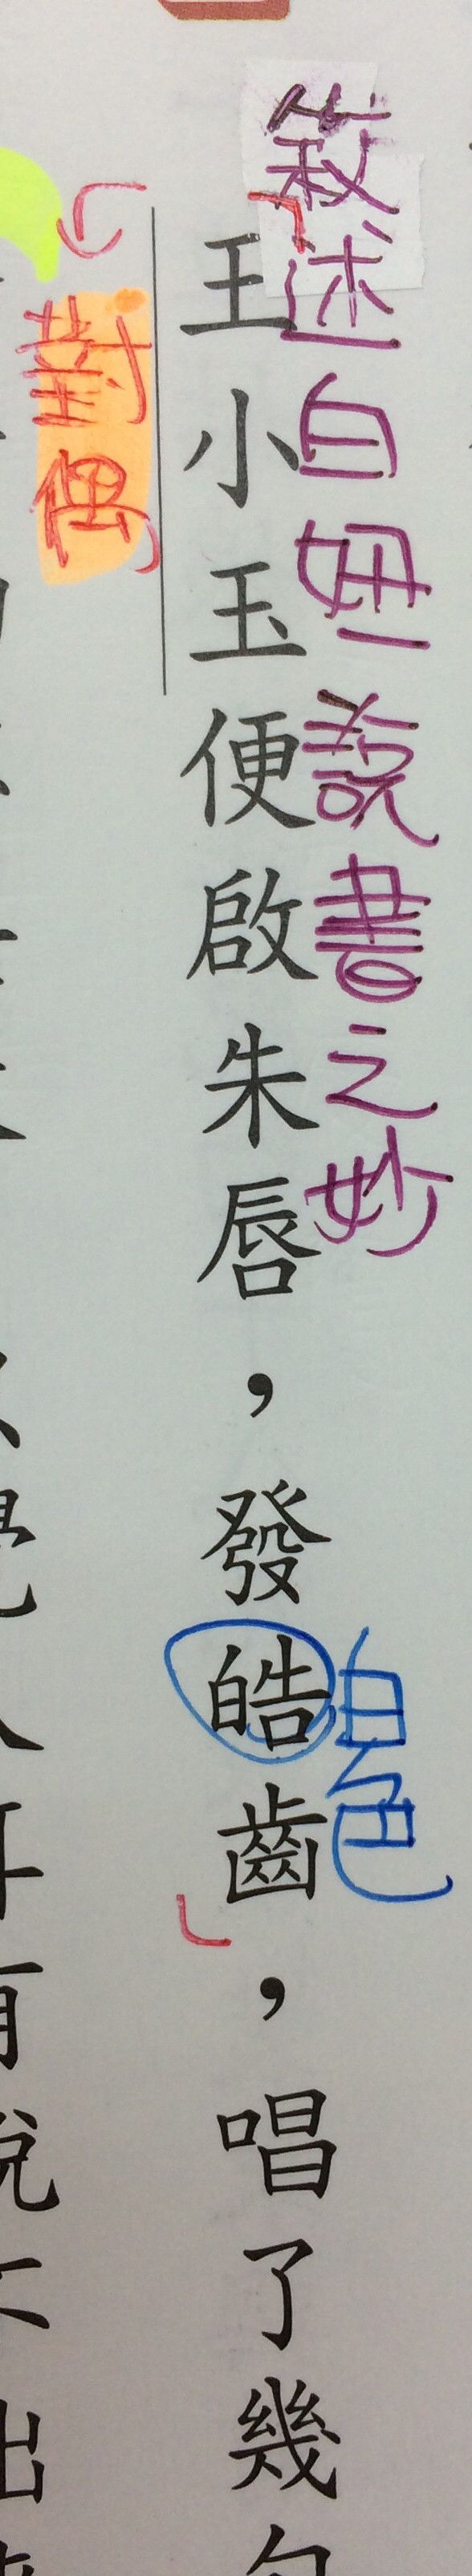 敘述白妞說書之妙
白色
王小玉便啟朱唇，發皓齒，唱了幾句
對偶